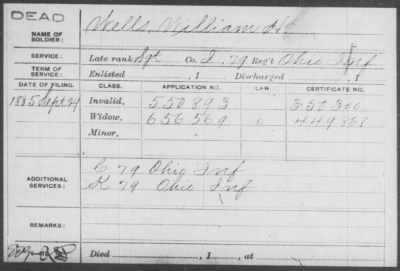 DEAD
NAME OF SOLDIER: Wells, William H.
SERVICE: Late rank Sgt Co. I, 79 Reg't Ohio Inf
TERM OF SERVICE: Enlisted , 1 Discharged , 1
DATE OF FILING. CLASS. APPLICATION NO. LAW. CERTIFICATE NO.
1885 Sept 29 Invalid, 550893 350300
Widow, 656569 449868
Minor,
C 79 Ohio Inf
ADDITIONAL SERVICES: K 79 Ohio Inf
REMARKS:
Died , 1 , at